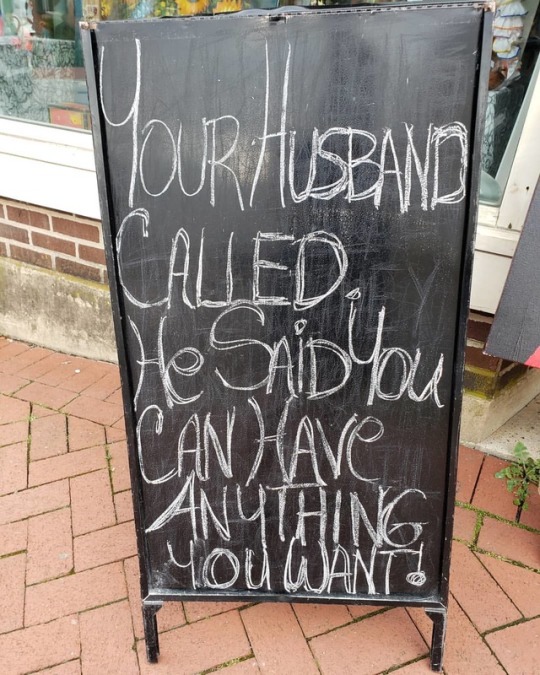 Your Husband
Called.
He Said You
Can Have
Anything
You Want!